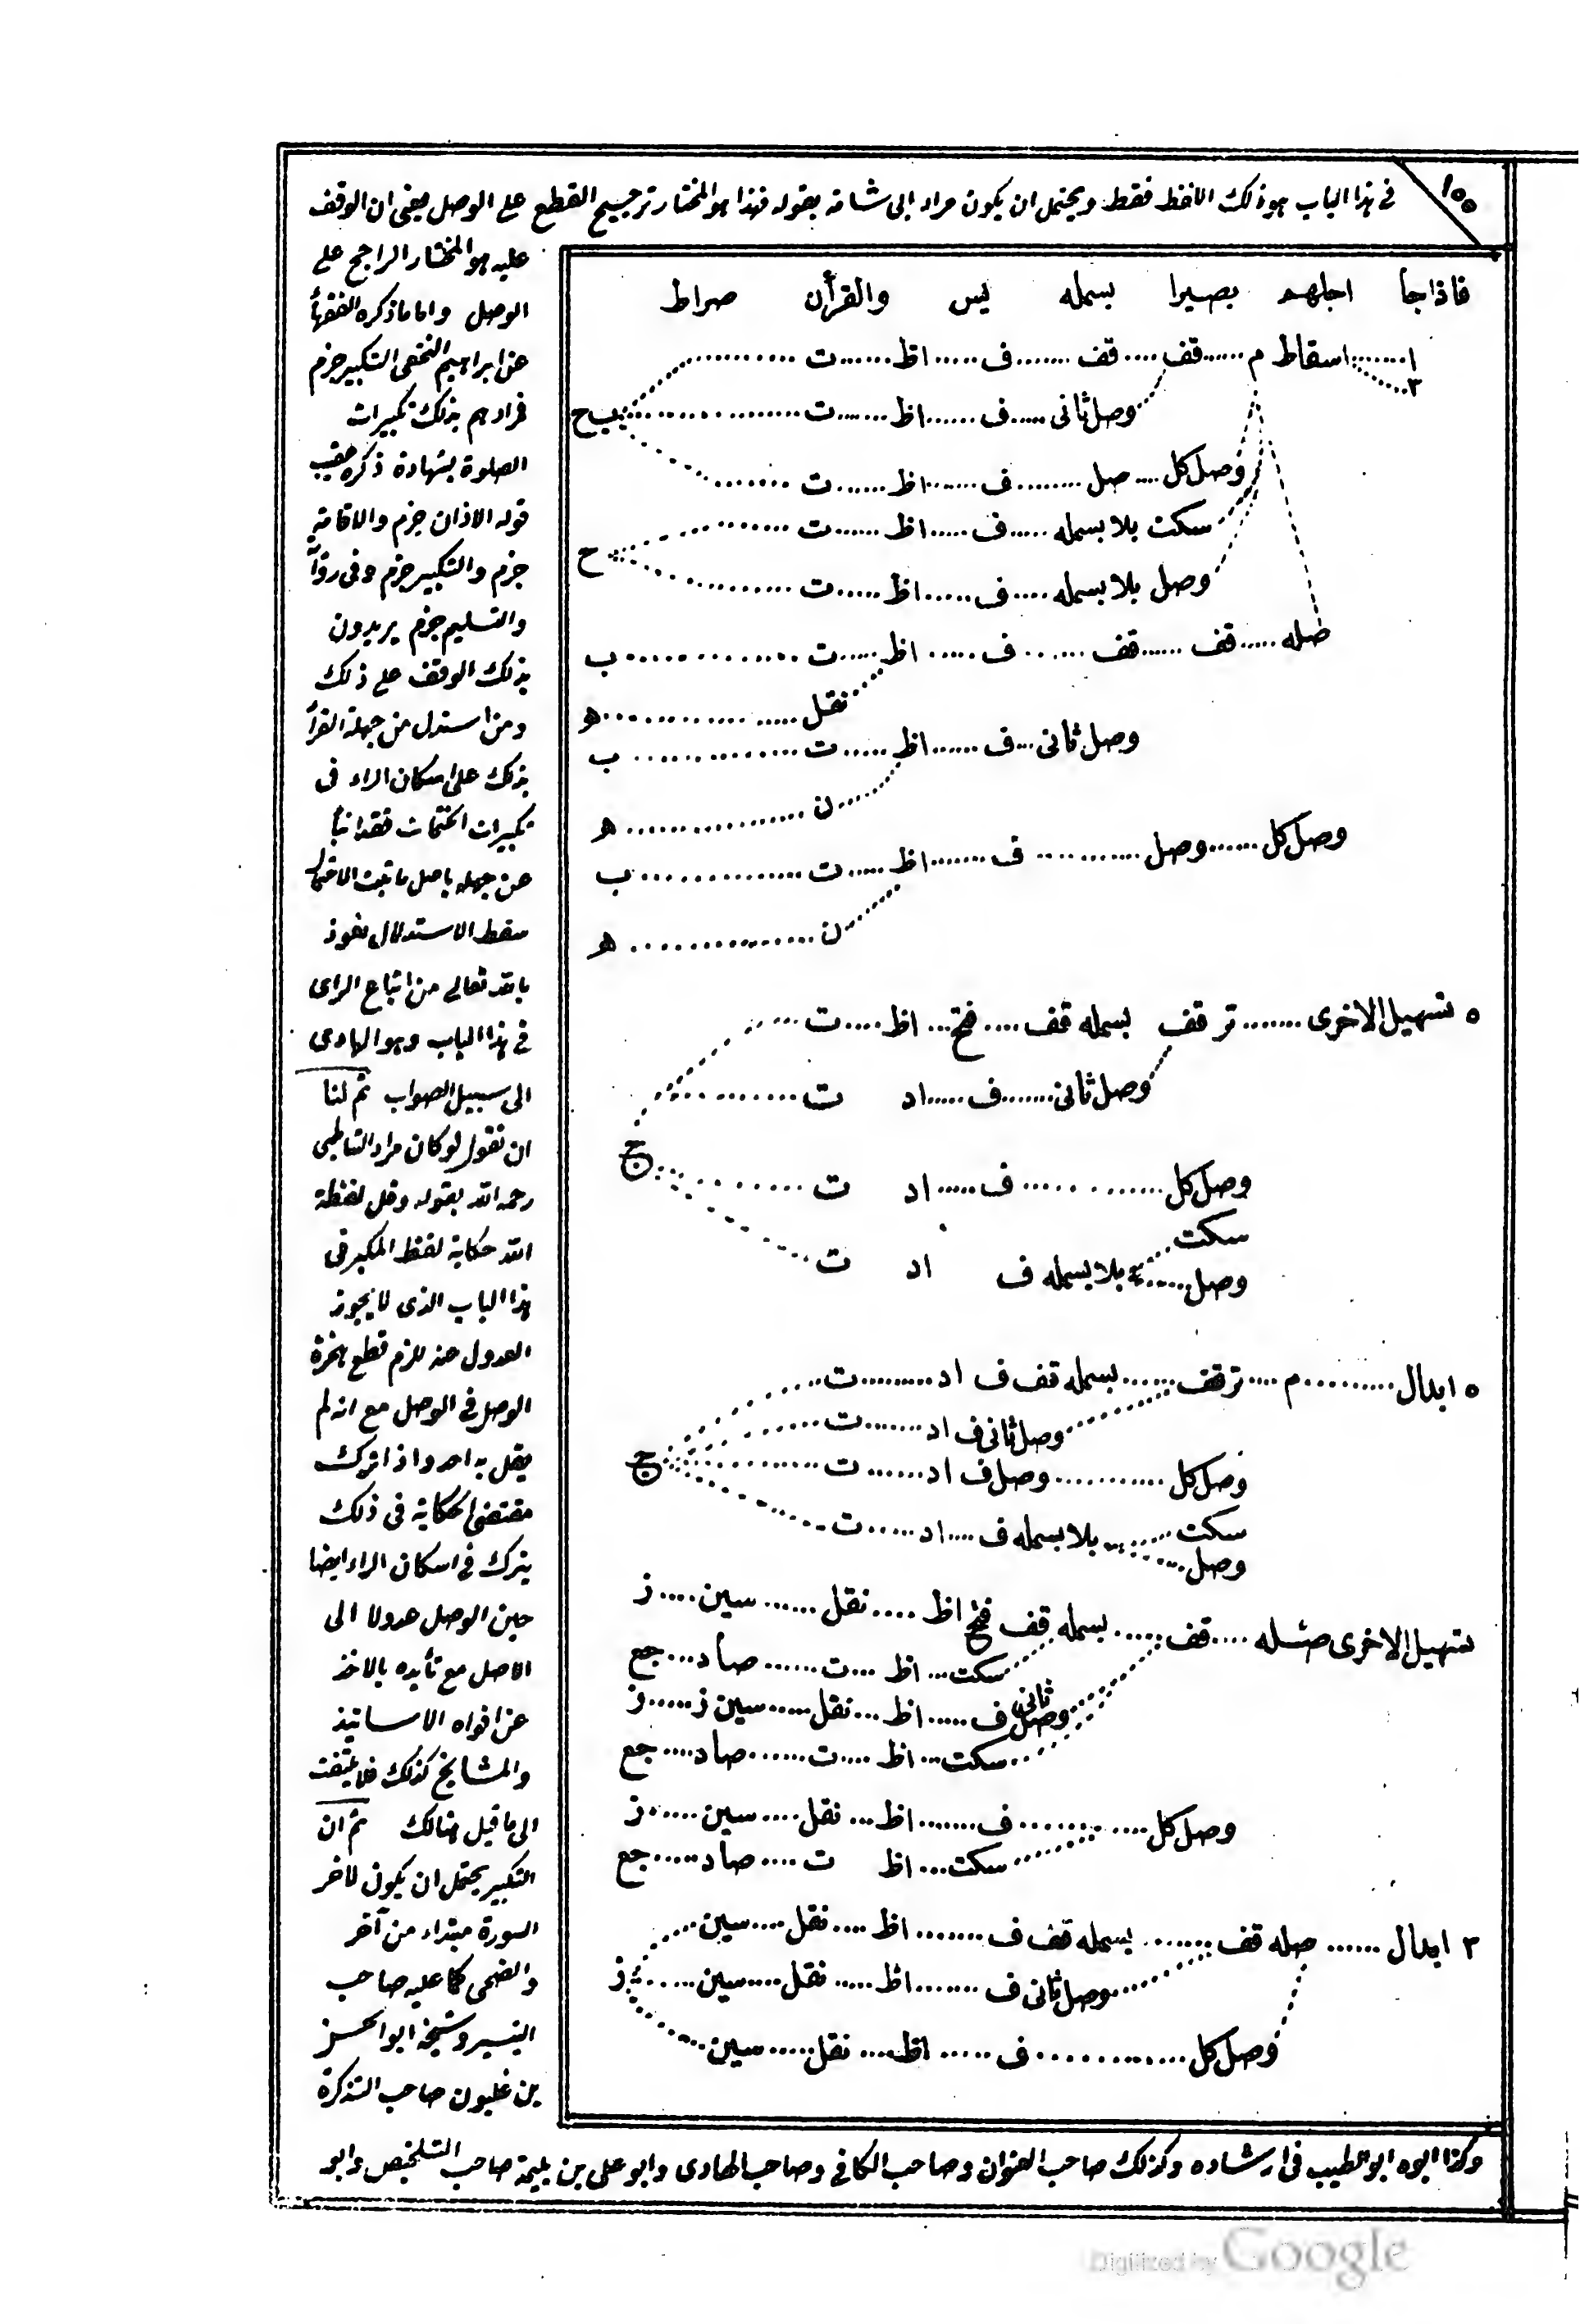 ١٥٥
في هذا الباب هو ذلك اللفظ فقط ويحتمل ان يكون مراد ابى شامة بقوله فهذا هو المختار ترجيح القطع على الوصل يعنى ان الوقف
عليه هو المختار الراجح على
الوصل واما ما ذكره الفقهاء
عن ابراهيم النخعى التكبير جزم
فمرادهم بذلك تكبيرات
الصلوة بشهادة ذكره عقيب
قوله الاذان جزم والاقامة
جزم والتكبير جزم وفى رواية
والتسليم جزم يريدون
بذلك الوقف على ذلك
ومن استدل من جهلة القرأ
بذلك على اسكان الراء فى
تكبيرات الختمات فقد انبأ
عن جهله باصل ما ثبت الاحتمال
سقط الاستدلال نعوذ
بالله تعالى من اتباع الراى
فى هذا الباب وهو الهادى
الى سبيل الصواب ثم لنا
ان نقول لو كان مراد الشاطبى
رحمه الله بقوله وقل لفظة
الله حكاية لفظ المكبر فى
هذا الباب الذى لا يجوز
العدول عنه للزم قطع همزة
الوصل فى الوصل مع انه لم
يقل به احد واذا ترك
مقتضى الحكاية فى ذلك
يترك فى اسكان الراء ايضا
حين الوصل عدولا الى
الاصل مع تأيده بالاخذ
عن افواه الاساتيذ
والمشايخ كذلك فلا يلتفت
الى ما قيل هنالك ثم ان
التكبير يحتمل ان يكون لآخر
السورة مبتداء من آخر
والضحى كما عليه صاحب
التيسير وشيخه ابو الحسن
بن غلبون صاحب التذكرة
وكذا ابوه ابو الطيب فى ارشاده وكذلك صاحب العنوان وصاحب الكافى وصاحب الهادى وابو على بن بليمة صاحب التلخيص وابو
فاذا جا اجلهم بصيرا بسمله يس والقرأن صراط
١ اسقاط م قف قف ف اظ ت
٣
وصل ثانى ف اظ ت ب ح
وصل كل صل ف اظ ت
سكت بلا بسمله ف اظ ت
ح
وصل بلا بسمله ف اظ ت
صله قف قف ف اظ ت ب
نقل ه
وصل ثانى ف اظ ت ب
ن ه
وصل كل وصل ف اظ ت ب
ن ه
٥ تسهيل الاخرى تر قف بسمله قف فتح اظ ت
وصل ثانى ف اد ت
ج
وصل كل ف اد ت
سكت
وصل بلا بسمله ف اد ت
٥ ابدال م تر قف بسمله قف ف اد ت
وصل ثانى ف اد ت
ج
وصل كل وصل ف اد ت
سكت بلا بسمله ف اد ت
وصل
تسهيل الاخرى صله قف بسمله قف فتح اظ نقل سين ز
سكت اظ ت صاد جع
وصل ثانى ف اظ نقل سين ز
سكت اظ ت صاد جع
وصل كل ف اظ نقل سين ز
سكت اظ ت صاد جع
٣ ابدال صله قف بسمله قف ف اظ نقل سين
وصل ثانى ف اظ نقل سين ز
وصل كل ف اظ نقل سين
Digitized by Google